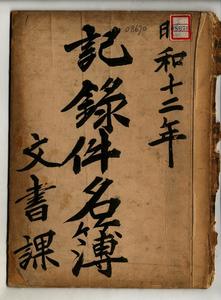 昭和十二年
記録件名簿
文書課
08670